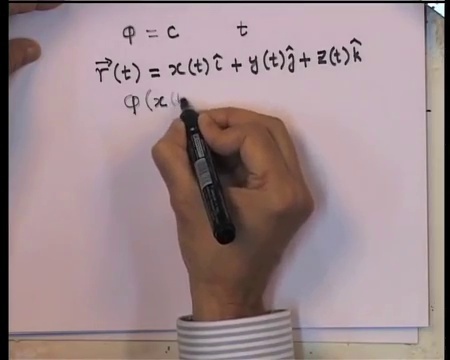 φ = c t
r⃗(t) = x(t)î + y(t)ĵ + z(t)k̂
φ(x(